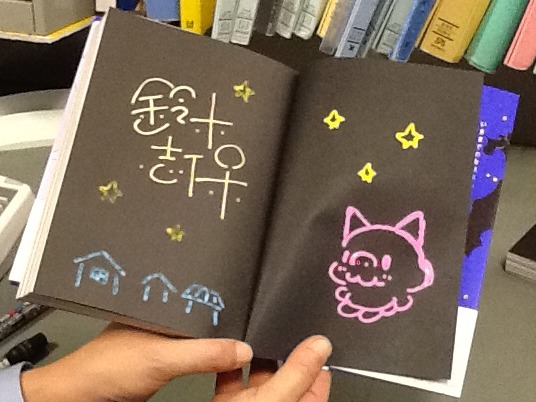 鈴木
志保